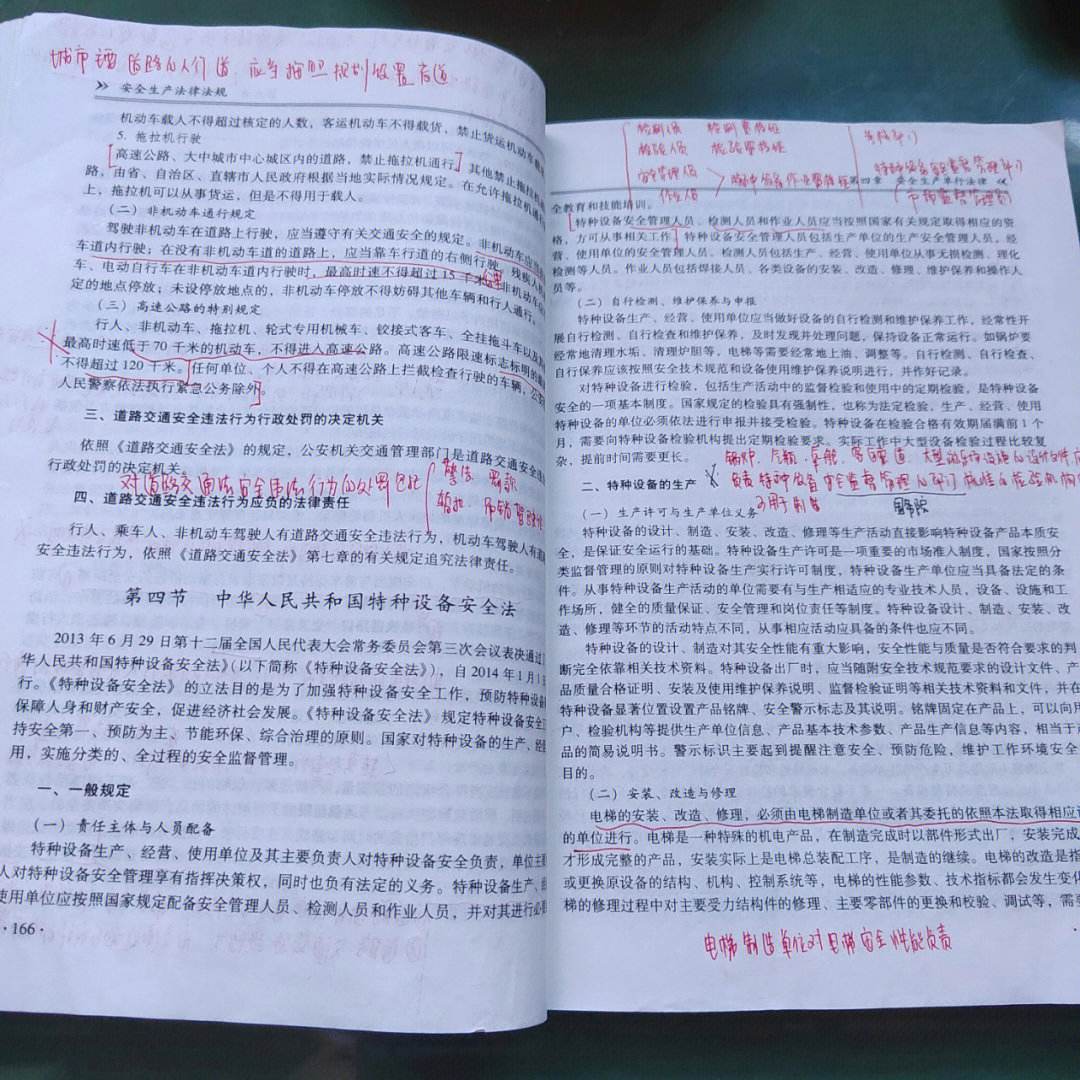 城市 道路的人行道 应当按照规划设置盲道
安全生产法律法规
机动车载人不得超过核定的人数，客运机动车不得载货，禁止货运机动车载
5. 拖拉机行驶
高速公路、大中城市中心城区内的道路，禁止拖拉机通行。其他禁止拖拉机
路，由省、自治区、直辖市人民政府根据当地实际情况规定。在允许拖拉机通行
上，拖拉机可以从事货运，但是不得用于载人。
（二）非机动车通行规定
驾驶非机动车在道路上行驶，应当遵守有关交通安全的规定。非机动车应当
车道内行驶；在没有非机动车道的道路上，应当靠车行道的右侧行驶。残疾人机
车、电动自行车在非机动车道内行驶时，最高时速不得超过 15 千米。非机动车应
定的地点停放；未设停放地点的，非机动车停放不得妨碍其他车辆和行人通行。
（三）高速公路的特别规定
行人、非机动车、拖拉机、轮式专用机械车、铰接式客车、全挂拖斗车以及
最高时速低于 70 千米的机动车，不得进入高速公路。高速公路限速标志标明的最
不得超过 120 千米。任何单位、个人不得在高速公路上拦截检查行驶的车辆，公安
人民警察依法执行紧急公务除外。
三、道路交通安全违法行为行政处罚的决定机关
依照《道路交通安全法》的规定，公安机关交通管理部门是道路交通安全违
行政处罚的决定机关。
对道路交通 安全违法行为的处罚包括
警告 罚款
暂扣
四、道路交通安全违法行为应负的法律责任
行人、乘车人、非机动车驾驶人有道路交通安全违法行为，机动车驾驶人有道
安全违法行为，依照《道路交通安全法》第七章的有关规定追究法律责任。
第四节 中华人民共和国特种设备安全法
2013 年 6 月 29 日第十二届全国人民代表大会常务委员会第三次会议表决通过
华人民共和国特种设备安全法》（以下简称《特种设备安全法》），自 2014 年 1 月 1
行。《特种设备安全法》的立法目的是为了加强特种设备安全工作，预防特种设备
保障人身和财产安全，促进经济社会发展。《特种设备安全法》规定特种设备安全工
持安全第一、预防为主、节能环保、综合治理的原则。国家对特种设备的生产、经
用，实施分类的、全过程的安全监督管理。
一、一般规定
（一）责任主体与人员配备
特种设备生产、经营、使用单位及其主要负责人对特种设备安全负责，单位主要
人对特种设备安全管理享有指挥决策权，同时也负有法定的义务。特种设备生产、经
使用单位应按照国家规定配备安全管理人员、检测人员和作业人员，并对其进行必要
·166·
检测人员 检测资格证
检验人员 检验资格证
安全管理人员
作业人员
第四章 安全生产单行法律
全教育和技能培训。
特种设备安全管理人员、检测人员和作业人员应当按照国家有关规定取得相应的资
格，方可从事相关工作。特种设备安全管理人员包括生产单位的生产安全管理人员，经
营、使用单位的安全管理人员。检测人员包括生产、经营、使用单位从事无损检测、理化
检测等人员。作业人员包括焊接人员、各类设备的安装、改造、修理、维护保养和操作人
员等。
（二）自行检测、维护保养与申报
特种设备生产、经营、使用单位应当做好设备的自行检测和维护保养工作，经常性开
展自行检测、自行检查和维护保养，及时发现并处理问题，保持设备正常运行。如锅炉要
经常地清理水垢、清理炉胆等，电梯等需要经常地上油、调整等。自行检测、自行检查、
自行保养应该按照安全技术规范和设备使用维护保养说明进行，并作好记录。
对特种设备进行检验，包括生产活动中的监督检验和使用中的定期检验，是特种设备
安全的一项基本制度。国家规定的检验具有强制性，也称为法定检验，生产、经营、使用
特种设备的单位必须依法进行申报并接受检验。特种设备在检验合格有效期届满前 1 个
月，需要向特种设备检验机构提出定期检验要求。实际工作中大型设备检验过程比较复
杂，提前时间需要更长。
二、特种设备的生产
（一）生产许可与生产单位义务
国务院
特种设备的设计、制造、安装、改造、修理等生产活动直接影响特种设备产品本质安
全，是保证安全运行的基础。特种设备生产许可是一项重要的市场准入制度，国家按照分
类监督管理的原则对特种设备生产实行许可制度，特种设备生产单位应当具备法定的条
件。从事特种设备生产活动的单位需要有与生产相适应的专业技术人员，设备、设施和工
作场所，健全的质量保证、安全管理和岗位责任等制度。特种设备设计、制造、安装、改
造、修理等环节的活动特点不同，从事相应活动应具备的条件也应不同。
特种设备的设计、制造对其安全性能有重大影响，安全性能与质量是否符合要求的判
断完全依靠相关技术资料。特种设备出厂时，应当随附安全技术规范要求的设计文件、产
品质量合格证明、安装及使用维护保养说明、监督检验证明等相关技术资料和文件，并在
特种设备显著位置设置产品铭牌、安全警示标志及其说明。铭牌固定在产品上，可以向用
户、检验机构等提供生产单位信息、产品基本技术参数、产品生产信息等内容，相当于产
品的简易说明书。警示标识主要起到提醒注意安全、预防危险，维护工作环境安全
目的。
（二）安装、改造与修理
电梯的安装、改造、修理，必须由电梯制造单位或者其委托的依照本法取得相应许
的单位进行。电梯是一种特殊的机电产品，在制造完成时以部件形式出厂，安装完成
才形成完整的产品，安装实际上是电梯总装配工序，是制造的继续。电梯的改造是指
或更换原设备的结构、机构、控制系统等，电梯的性能参数、技术指标都会发生变化
梯的修理过程中对主要受力结构件的修理、主要零部件的更换和校验、调试等，需要
电梯制造单位对电梯安全性能负责